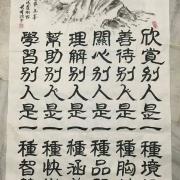 欣賞別人是一種境
善待別人是一種胸
關心別人是一種品
理解別人是一種涵
幫助別人是一種快
學習別人是一種智